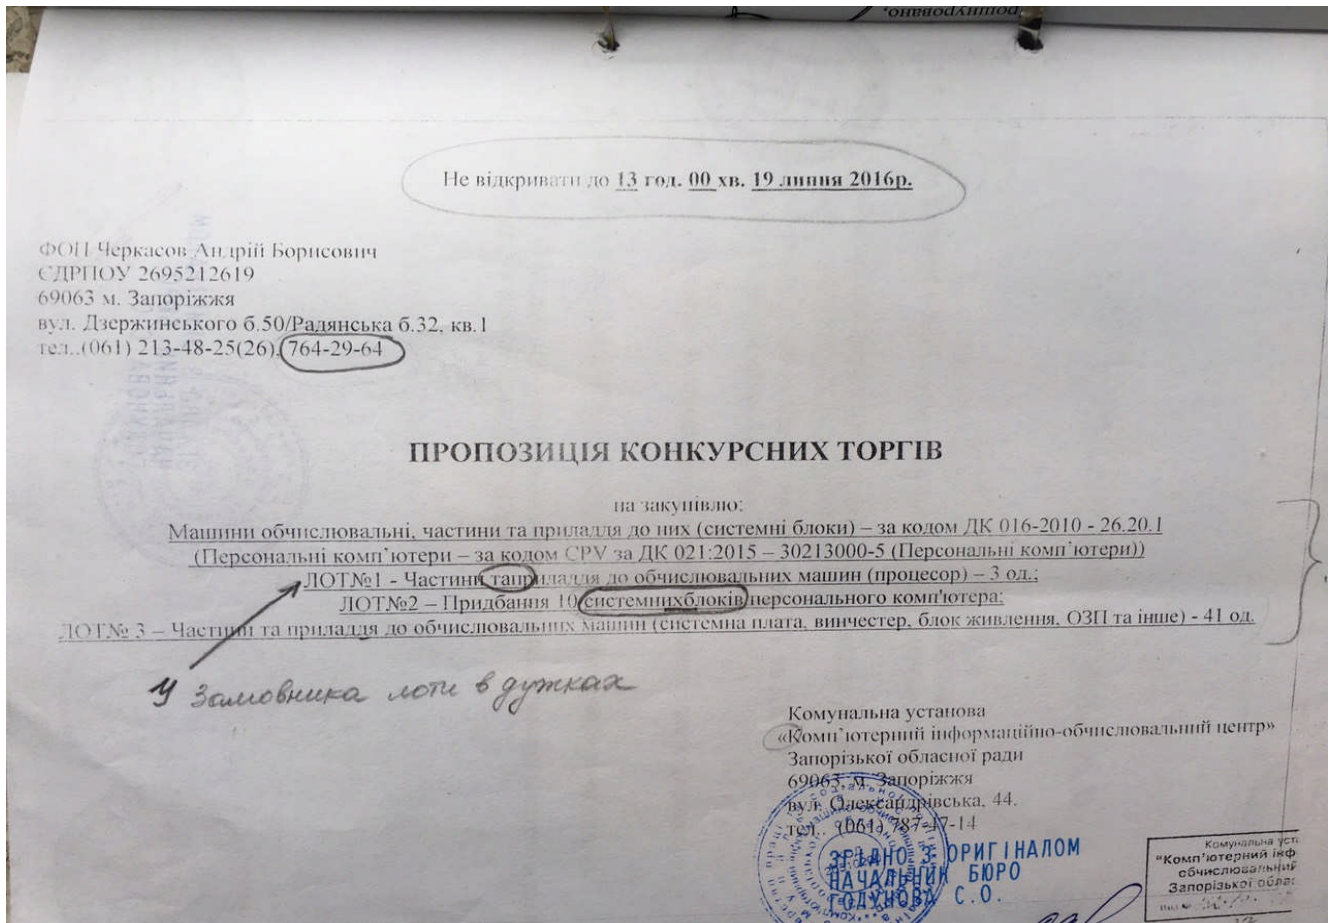 прошнуровано,
Не відкривати до 13 год. 00 хв. 19 липня 2016р.
ФОП Черкасов Андрій Борисович
ЄДРПОУ 2695212619
69063 м. Запоріжжя
вул. Дзержинського б.50/Радянська б.32, кв.1
тел..(061) 213-48-25(26), 764-29-64
ПРОПОЗИЦІЯ КОНКУРСНИХ ТОРГІВ
на закупівлю:
Машини обчислювальні, частини та приладдя до них (системні блоки) – за кодом ДК 016-2010 - 26.20.1
(Персональні комп'ютери – за кодом CPV за ДК 021:2015 – 30213000-5 (Персональні комп'ютери))
ЛОТ№1 - Частини таприладдя до обчислювальних машин (процесор) – 3 од.;
ЛОТ№2 – Придбання 10 системнихблоків персонального комп'ютера;
ЛОТ№ 3 – Частини та приладдя до обчислювальних машин (системна плата, винчестер, блок живлення, ОЗП та інше) - 41 од.
У Замовника лоти в дужках
Комунальна установа
«Комп'ютерний інформаційно-обчислювальний центр»
Запорізької обласної ради
69063 м. Запоріжжя
вул. Олександрівська, 44.
тел.. (061) 787-47-14
ЗГІДНО З ОРИГІНАЛОМ
НАЧАЛЬНИК БЮРО
ГОДУНОВА С.О.
Комунальна уст
"Комп'ютерний інф
обчислювальний
Запорізької обла